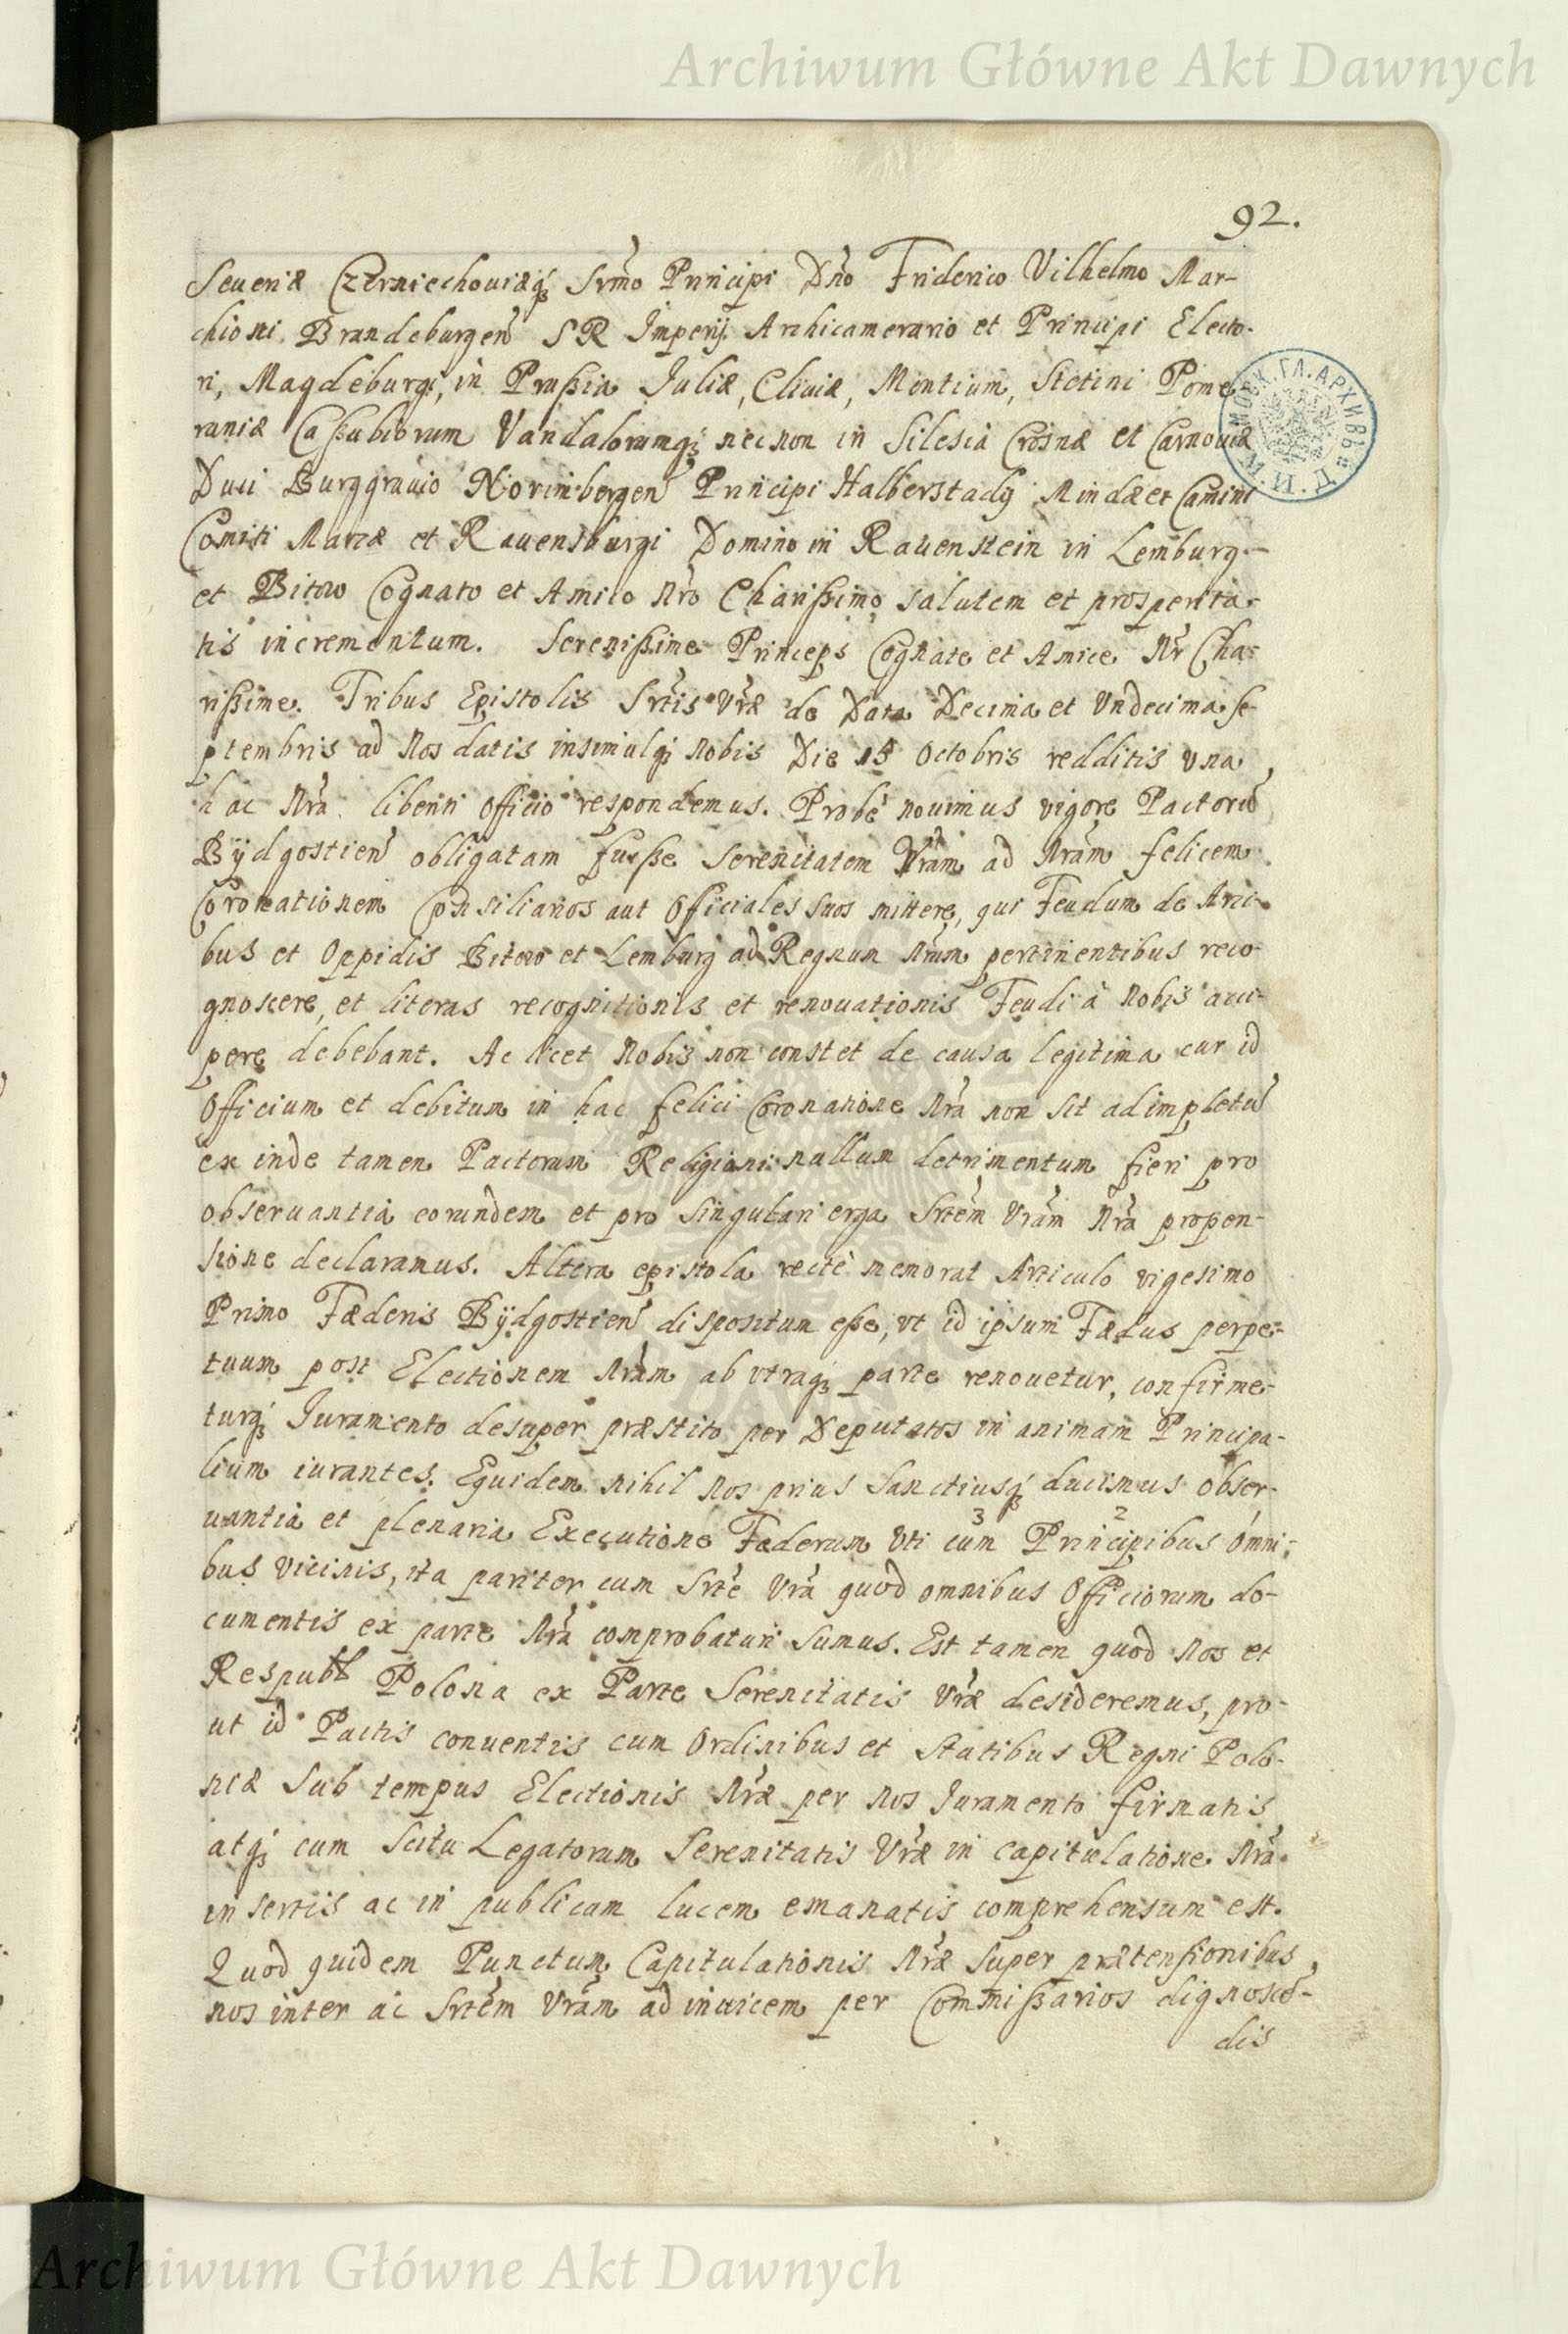 Archiwum Główne Akt Dawnych
92.
Seueriæ Czerniechouiæq̃ Srmo Principi Dño Friderico Vilhelmo Mar-
chioni Brandeburgen̄ S R Imperij Archicamerario et Principi Electo-
ri, Magdeburgi, in Prußia Juliæ, Cliuiæ, Montium, Stetini Pome
raniæ Caßubiorum Vandalorumq̃ necnon in Silesia Crosnæ et Carnouiæ
Duci Burggrauio Norimbergen̄ Principi Halberstadij Mindæ et Camini
Comiti Marcæ et Rauensburgi Domino in Rauenstein in Lemburg
et Bitow Cognato et Amico Nr̃o Charißimo salutem et prosperita-
tis incrementum. Serenißime Princeps Cognate et Amice Nr̃ Cha-
rißime. Tribus Epistolis Srtis Vr̃æ de Data Decima et Vndecima Se-
ptembris ad Nos datis insimulq̃ Nobis Die 15 Octobris redditis vna
hac Nr̃a libenti Officio respondemus. Probè nouimus vigore Pactorũ
Bÿdgostien̄ obligatam fuiße Serenitatem Vr̃am ad Nr̃am felicem
Coronationem Consiliarios aut Officiales suos mittere, qui Feudum de Arci-
bus et Oppidis Bitow et Lemburg ad Regnum Nr̃um pertinentibus reco-
gnoscere, et literas recognitionis et renouationis Feudi à Nobis acci-
pere debebant. Ac licet Nobis non constet de causa legitima cur id
Officium et debitum in hac felici Coronatione Nr̃a non sit adimpletũ
ex inde tamen Pactorum Religioni nullum detrimentum fieri pro
obseruantia eorundem et pro singulari erga Srtem Vr̃am Nr̃a propen-
sione declaramus. Altera epistola recte memorat Articulo vigesimo
Primo Fæderis Bÿdgostien̄ dispositum eße, vt id ipsum Fædus perpe-
tuum post Electionem Nr̃am ab vtraq̃ parte renouetur, confirme-
turq̃ Juramento desuper præstito per Deputatos in animam Principa-
lium iurantes. Equidem nihil Nos prius Sanctiusq̃ ducimus obser-
uantia et plenaria Executione Fæderum Vti cum 3 Principibus 2 omni-
bus vicinis, ita pariter cum Srte Vr̃a quod omnibus Officiorum do-
cumentis ex parte Nr̃a comprobaturi sumus. Est tamen quod Nos et
Respubl Polona ex Parte Serenitatis Vr̃æ desideremus, pro-
ut id Pactis conuentis cum Ordinibus et Statibus Regni Polo-
niæ sub tempus Electionis Nr̃æ per Nos Juramento firmatis
atq̃ cum Scitu Legatorum Serenitatis Vr̃æ in capitulatione Nr̃a
insertis ac in publicam lucem emanatis comprehensum est.
Quod quidem Punctum Capitulationis Nr̃æ super prætensionibus
nos inter ac Srtem Vr̃am ad inuicem per Commißarios dignoscẽ-
dis
Archiwum Główne Akt Dawnych